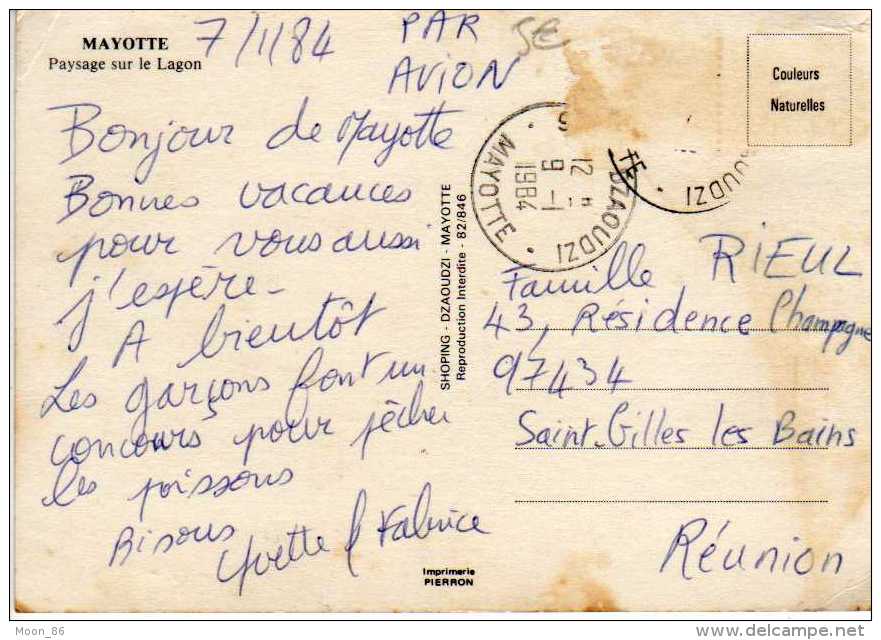 MAYOTTE
Paysage sur le Lagon
7/1/84
PAR
AVION
Couleurs
Naturelles
Bonjour de Mayotte
Bonnes vacances
pour vous aussi
j'espère -
A bientôt
Les garçons font un
concours pour pêcher
les poissons
Bisous
Yvette & Fabrice
SHOPING - DZAOUDZI - MAYOTTE
Reproduction Interdite - 82/846
DZAOUDZI
MAYOTTE
12
9 -1
1984
OUDZI
Famille RIEUL
43, Résidence Champagne
97434
Saint-Gilles les Bains
Réunion
Imprimerie
PIERRON
Moon_86
http://www.delcampe.net